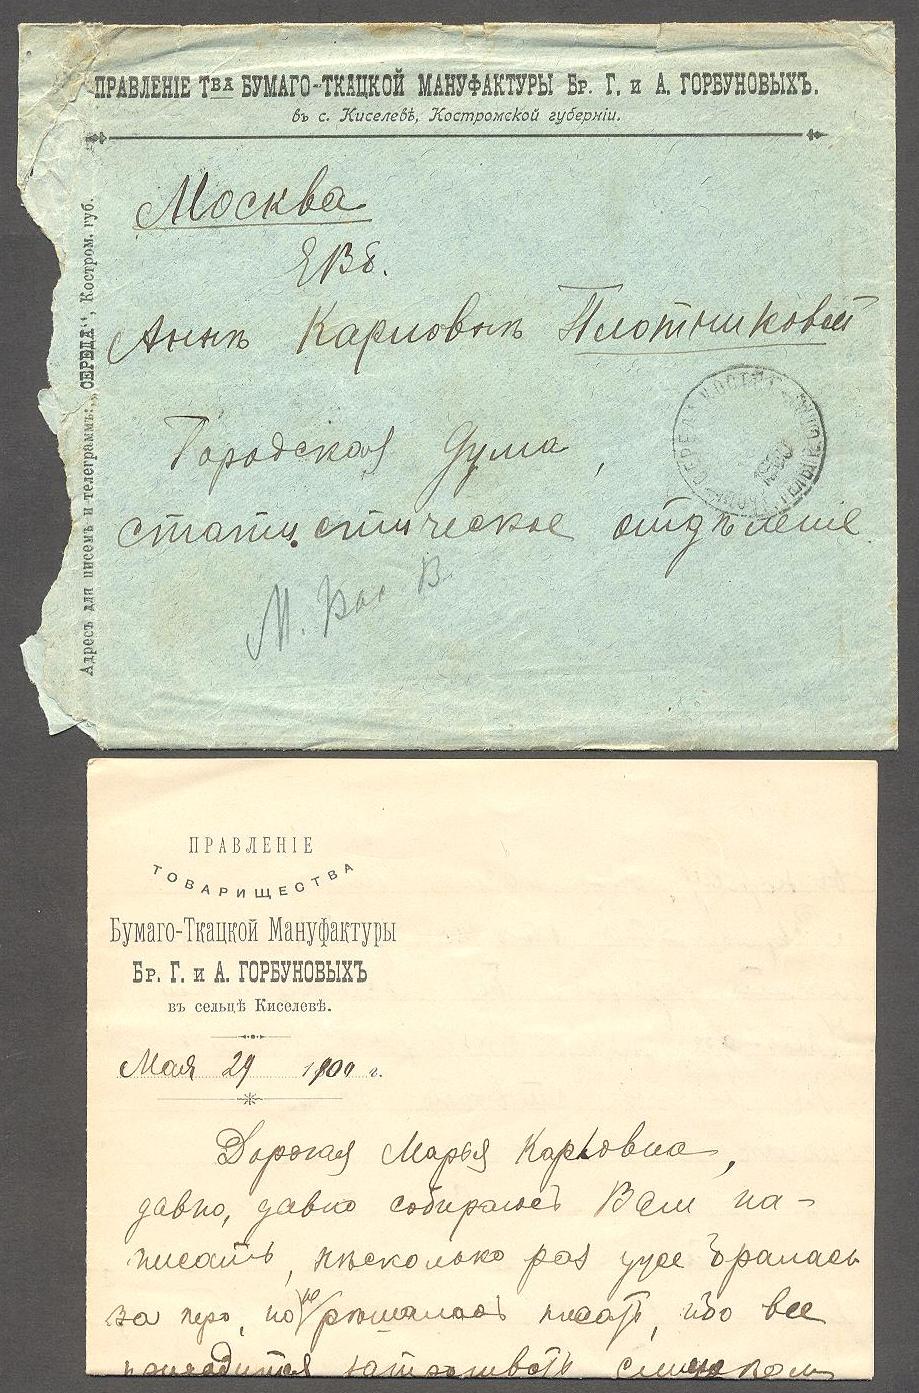 ПРАВЛЕНІЕ Тва БУМАГО-ТКАЦКОЙ МАНУФАКТУРЫ Бр. Г. и А. ГОРБУНОВЫХЪ.
въ с. Киселевѣ, Костромской губерніи.
Адресъ для писемъ и телеграммъ: „СЕРЕДА“, Костром. губ.
Москва
ЕВБ.
Аннѣ Карловнѣ Плотниковой
Городская Дума,
статистическое отдѣленіе
М. В.
ПРАВЛЕНІЕ
ТОВАРИЩЕСТВА
Бумаго-Ткацкой Мануфактуры
Бр. Г. и А. ГОРБУНОВЫХЪ
въ сельцѣ Киселевѣ.
Мая 29 1900 г.
Дорогая Марья Карловна,
давно, давно собираюсь Вам на-
писать, нѣсколько раз уже бралась
за перо, но не рѣшалась писать, ибо все
приходится затрогивать слишком